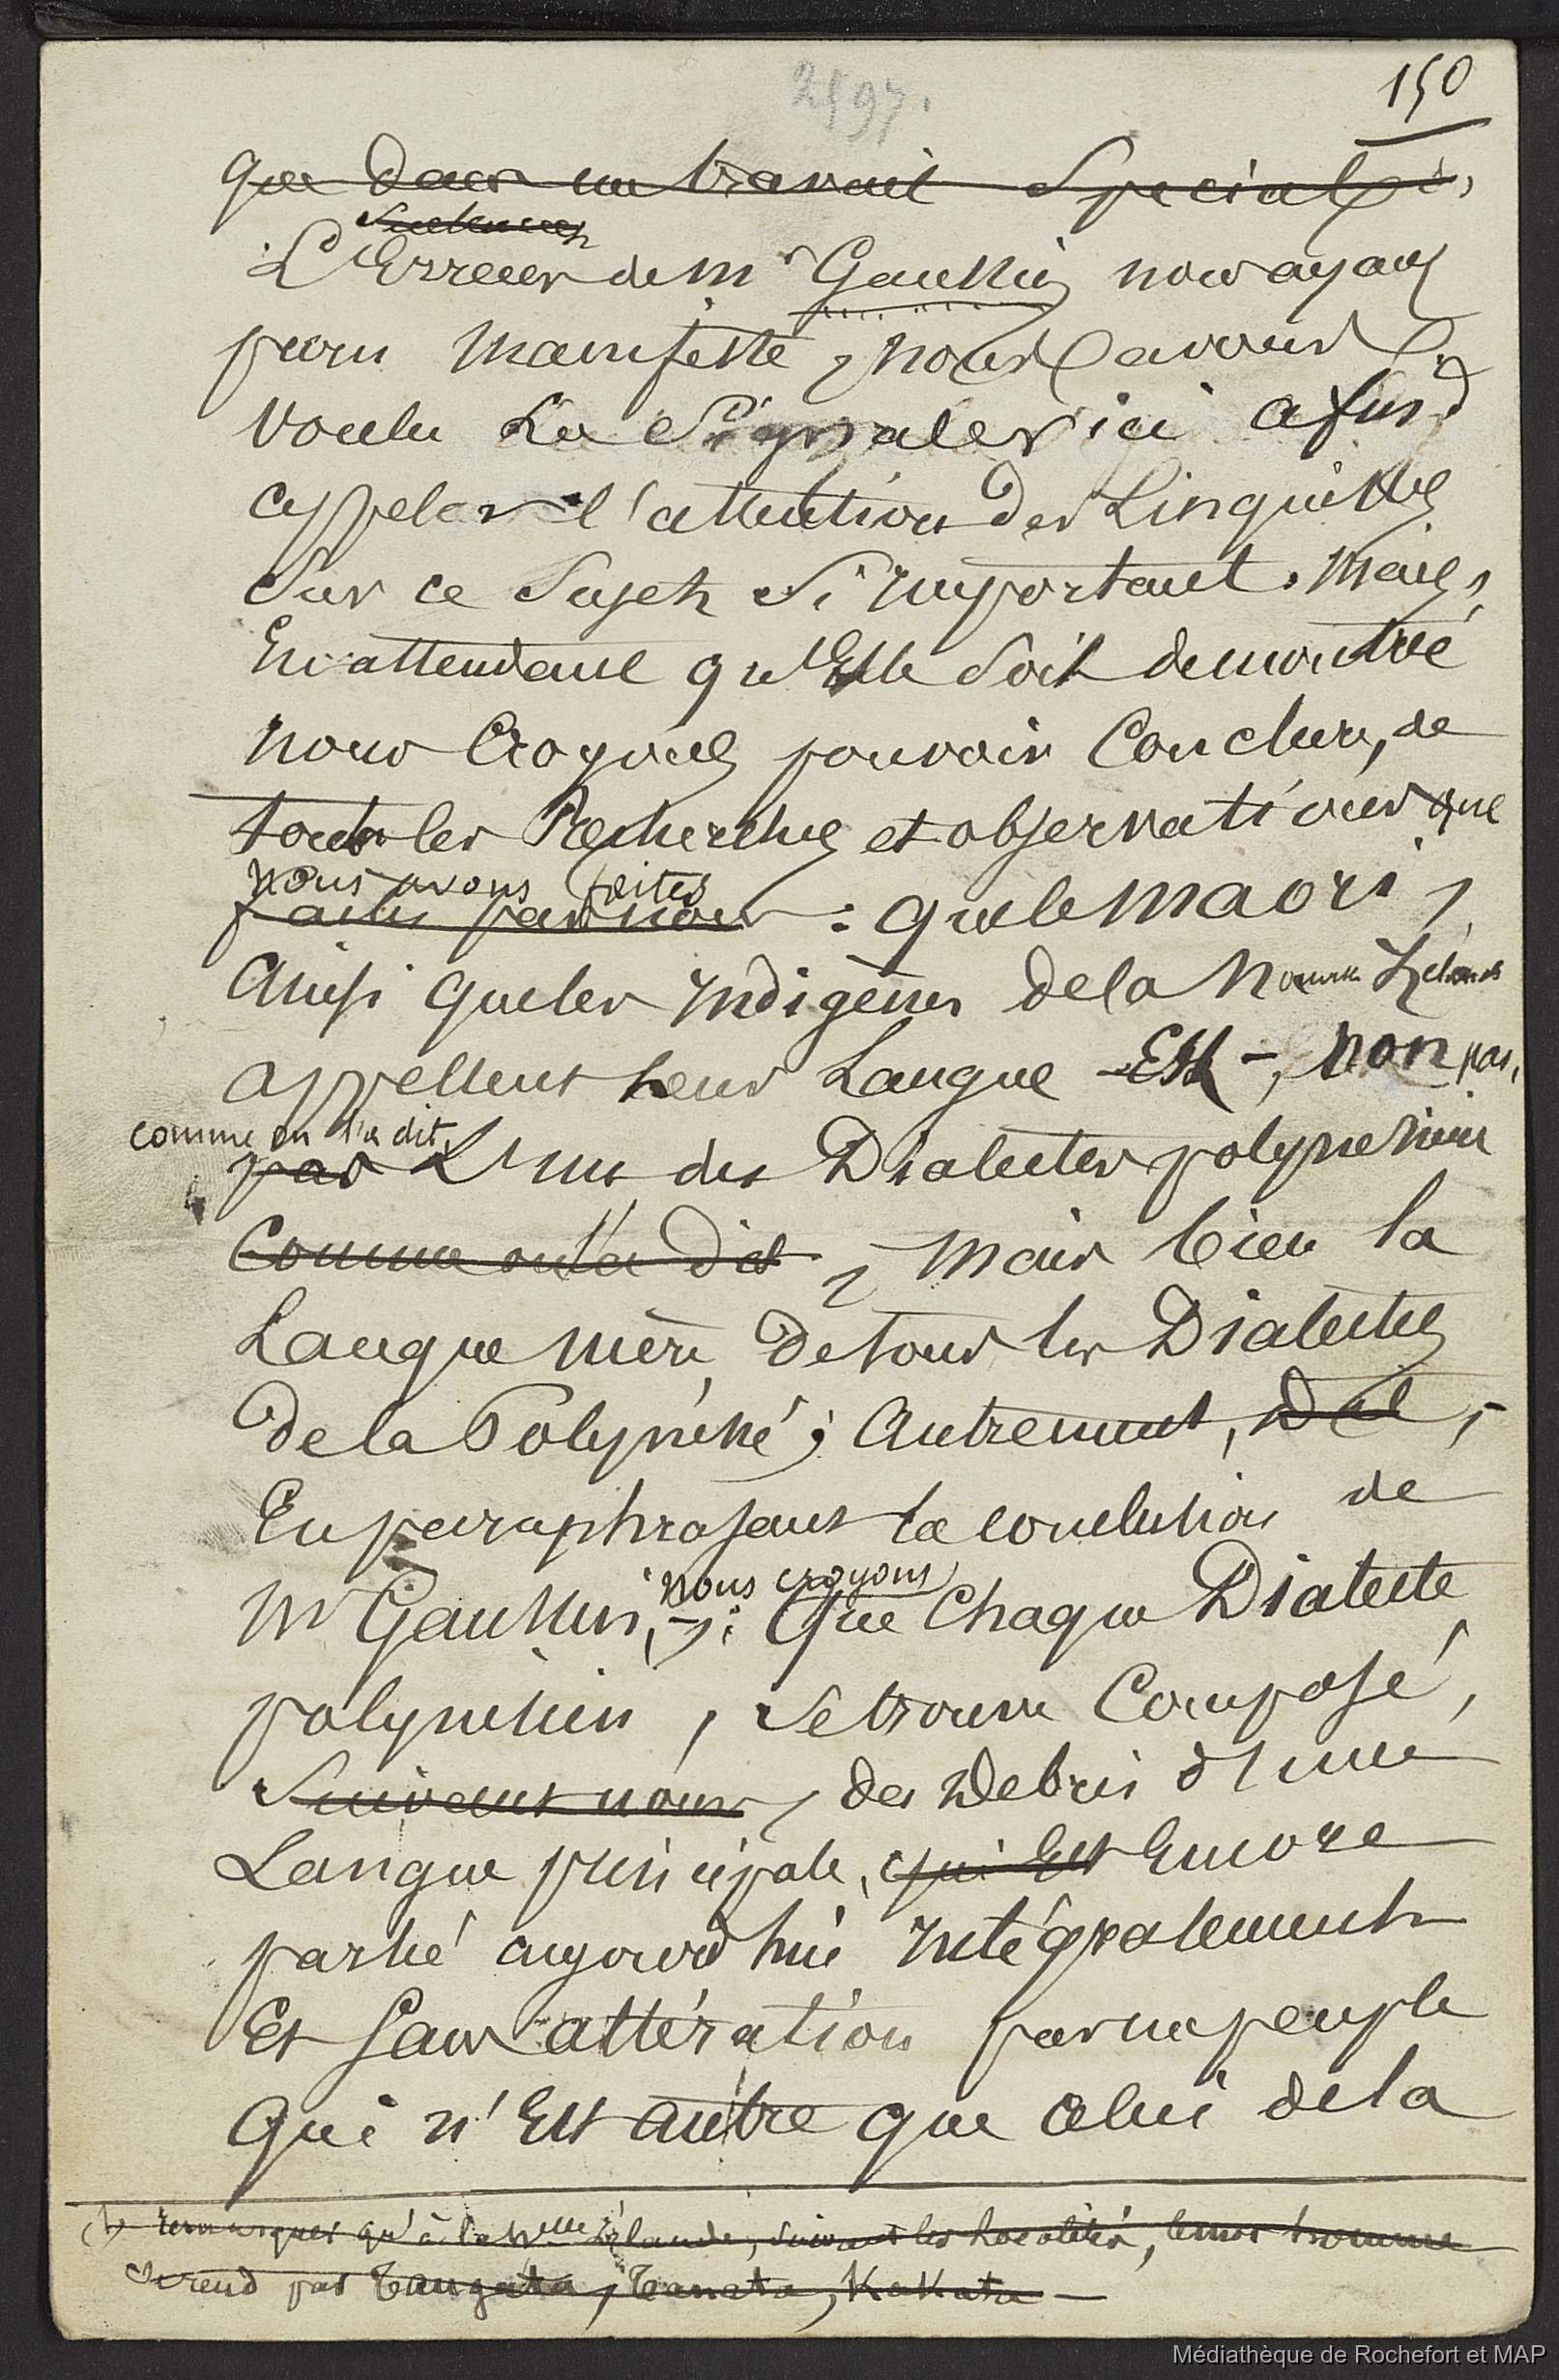 2597.
150
que dans un travail Special.
Seulement
L'Erreur de Mr Gaussin nous ayant
paru manifeste, nous avons
voulu la Signaler ici afin d
appeler l'attention des Linguistes
Sur ce Sujet Si important. Mais,
En attendant qu'Elle Soit demontré
nous Croyons pouvoir Conclure, de
toutes les Recherches et observations que
nous avons faites
faites par nous : que le Maori,
Ainsi que les indigènes de la Nouvelle Zelande
appellent leur Langue - Est -, non pas,
comme on l'a dit,
pas L'un des Dialectes polynesiens
Comme on l'a dit, mais bien la
Langue mère de tous les Dialectes
de la Polynésie; Autrement, dit,
En paraphrasant la conclusion de
Mr Gaussin,
nous croyons
: Que Chaque Dialecte
polynésien, Se trouve Composé,
Suivant nous, des Debris d'une
Langue principale, qui Est Encore
parlé aujourd'hui intégralement
Et Sans altération par un peuple
Qui n'Est autre que celui de la
(1) remarquer qu'à la Nelle Zélande, suivant les localités, le mot homme
se rend par Tangata, Tanata, Kakata -
Médiathèque de Rochefort et MAP